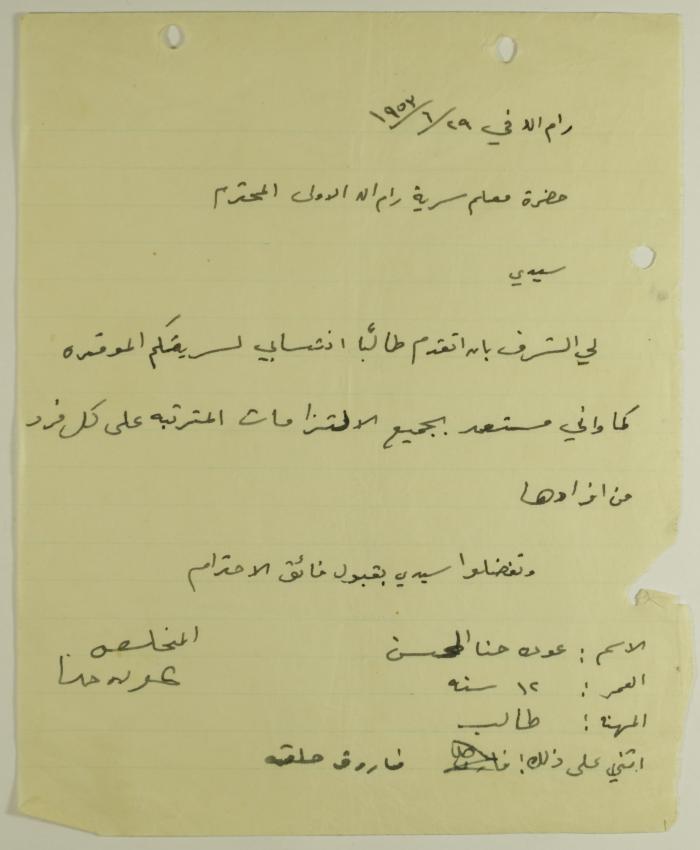 رام الله في ٢٩/٦/١٩٥٣
حضرة معلم سرية رام الله الاولى المحترم
سيدي
لي الشرف بان اتقدم طالبًا انتسابي لسريتكم الموقره
كما واني مستعد بجميع الالتزامات المترتبه على كل فرد
من افرادها
وتفضلوا سيدي بقبول فائق الاحترام
المخلص
عوده حنا
الاسم : عوده حنا
العمر : ١٢ سنه
المهنه : طالب
اثني على ذلك : فاروق